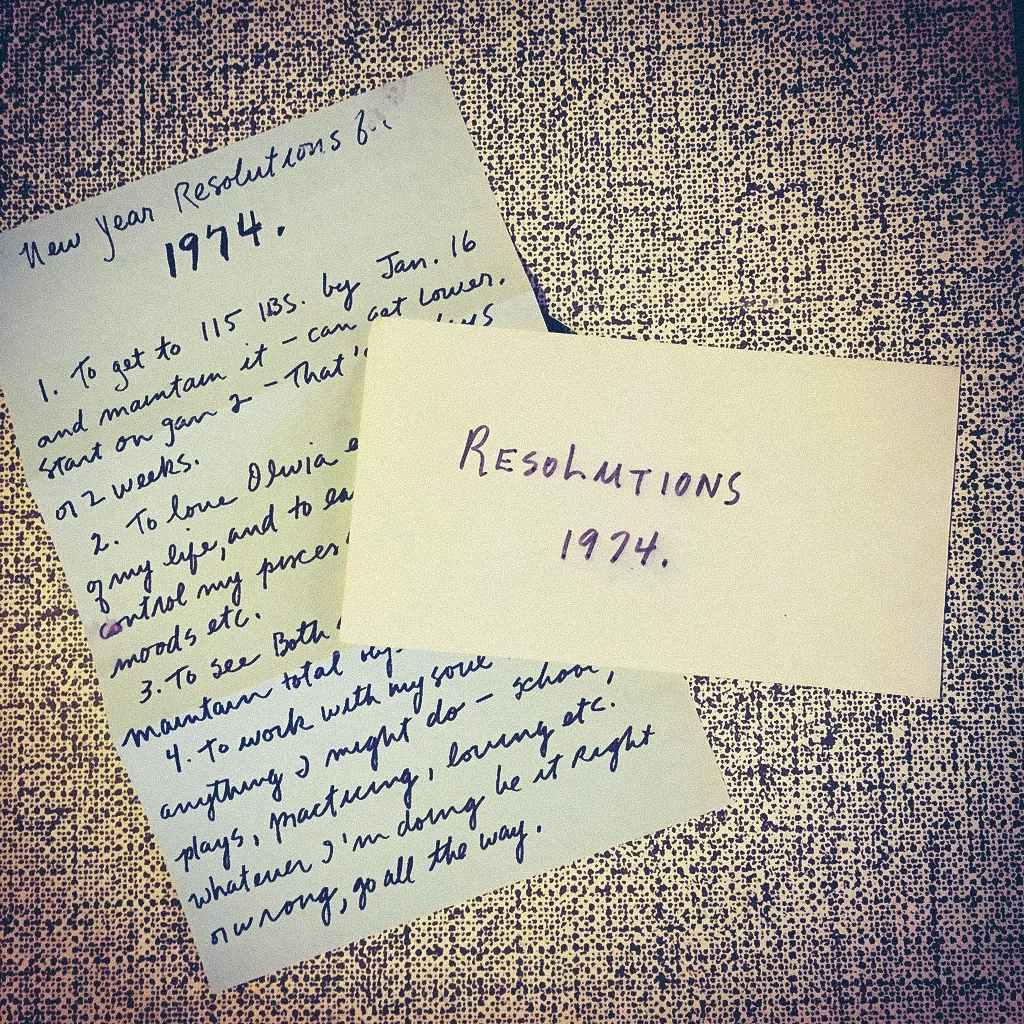 New Year Resolutions
1974.
1. To get to 115 lBS. by Jan. 16
and maintain it - can get lower.
start on Jan 2 - That's
or 2 weeks.
2. To love Olivia
of my life, and to
control my pisces
moods etc.
3. To see Both
maintain total
4. To work with my soul
anything I might do - school,
plays, practicing, loving etc.
whatever I'm doing be it right
or wrong, go all the way.
RESOLUTIONS
1974.